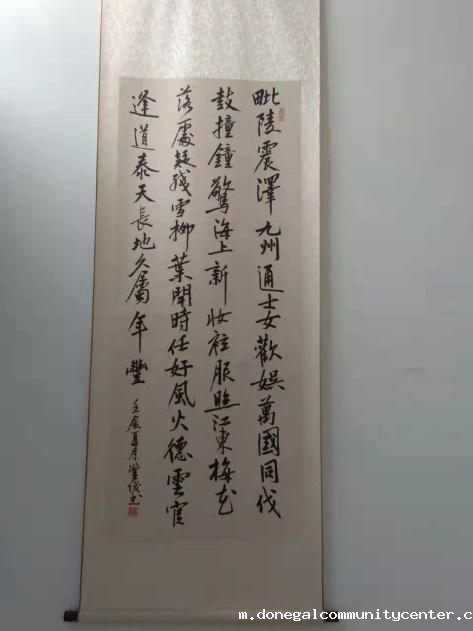 毗陵震澤九州通士女歡娛萬國同伐
鼓撞鐘驚海上新妝袨服照江東梅花
落處疑殘雪柳葉開時任好風火德雲官
逢道泰天長地久屬年豐
壬辰夏月
m.donegalcommunitycenter.c